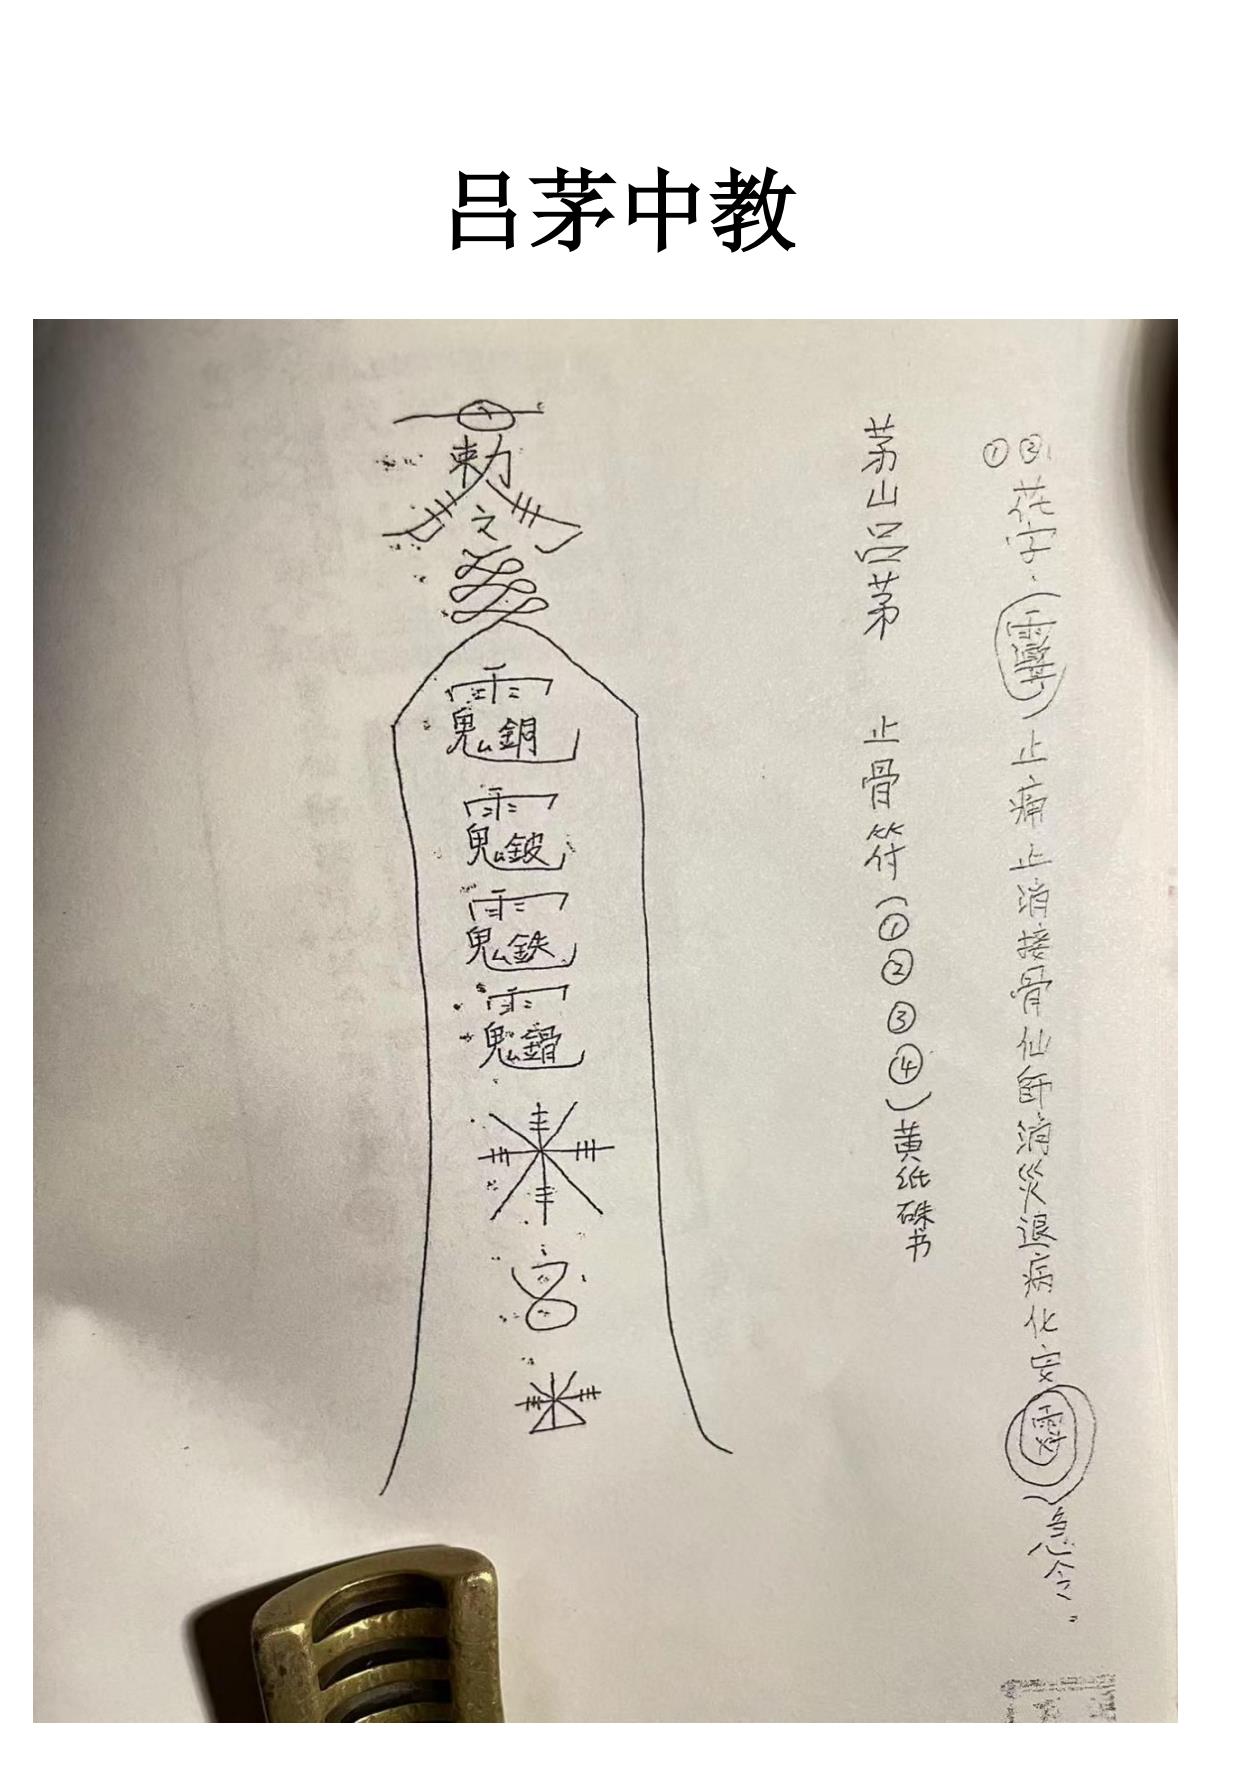 吕茅中教
①②花字
止痛止消接骨仙師消災退病化安
急令
茅山吕茅 止骨符(①②③④)黄纸硃书
敕
之
雨鬼銅
雨鬼鈹
雨鬼鉄
雨鬼